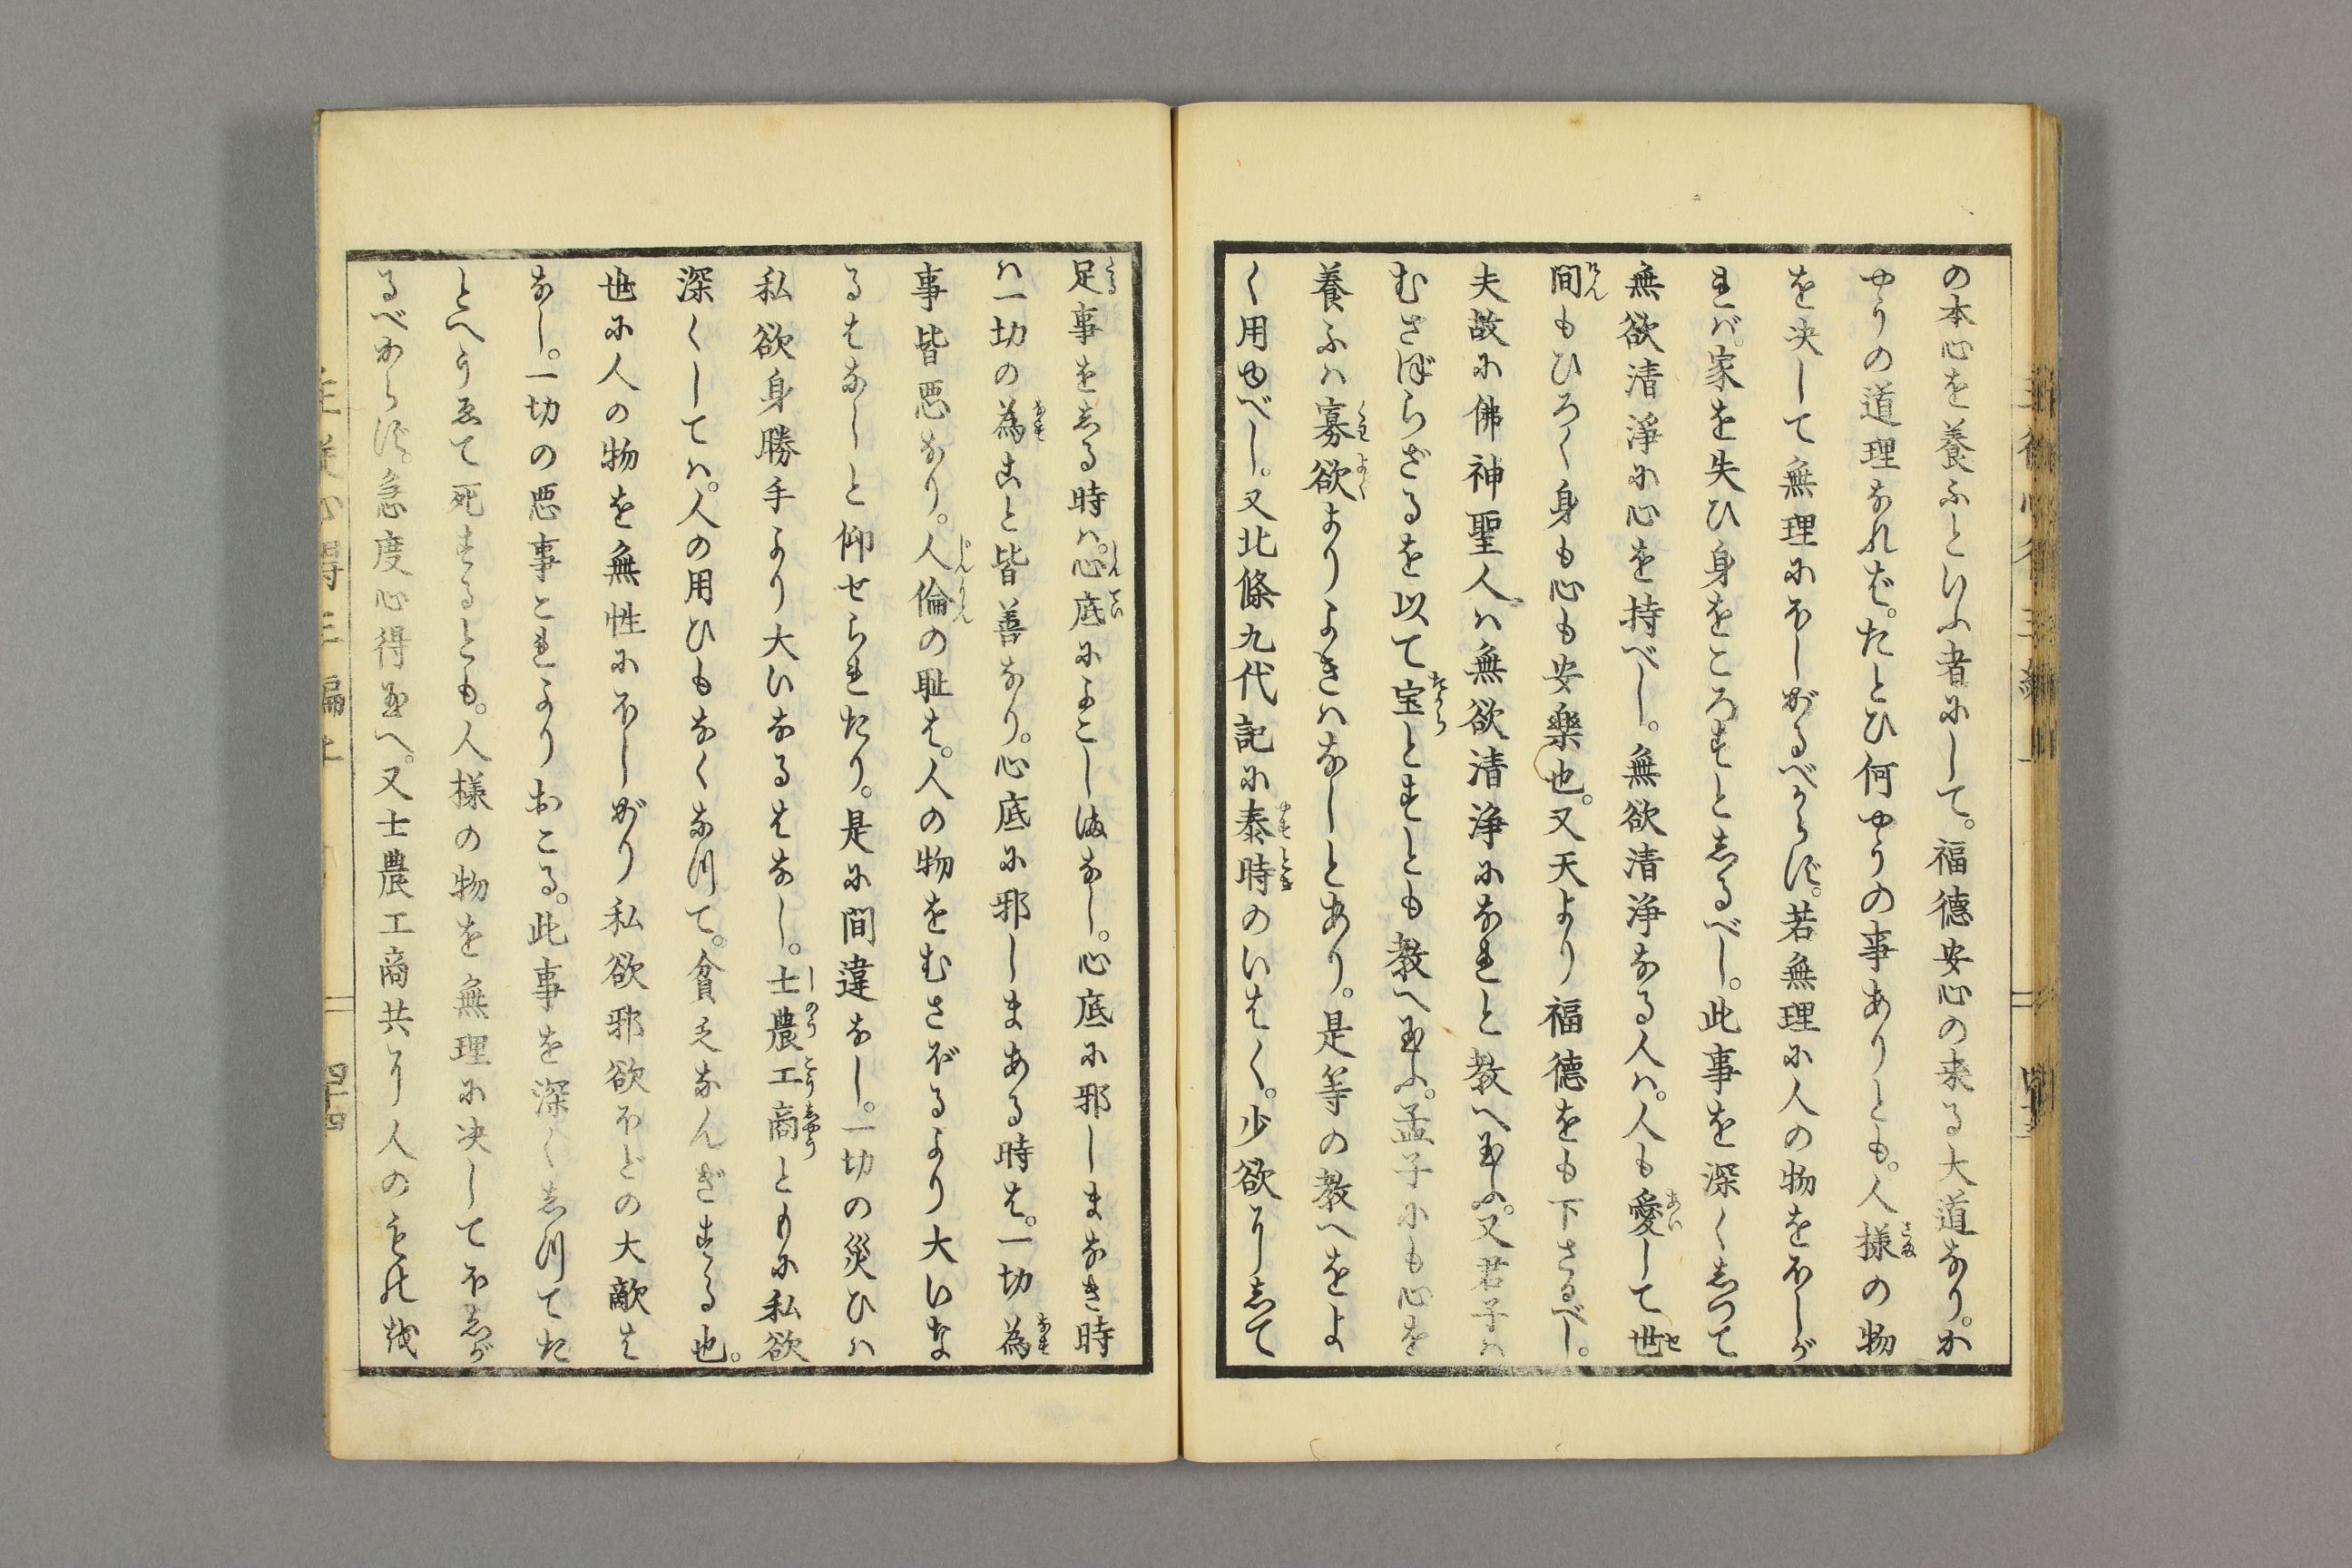 の本心を養ふといふ者にして。福德安心の来る大道なり。か
やうの道理なれば。たとひ何やうの事ありとも。人様の物
を决して無理にほしがるべからず。若無理に人の物をほしが
れば。家を失ひ身をころすとしるべし。此事を深くしつて
無欲清淨に心を持べし。無欲清浄なる人ハ。人も愛して世
間もひろく身も心も安樂也。又天より福德をも下さるべし。
夫故に佛神聖人ハ無欲清浄になれと教へ玉ふ。又君子ハ
むさぼらざるを以て宝とすとも教へ玉ふ。孟子にも心を
養ふハ寡欲よりよきハなしとあり。是等の教へをよ
く用ゆべし。又北條九代記に泰時のいはく。少欲にして
足事をしる時ハ。心底によこしまなし。心底に邪しまなき時
ハ一切の為こと皆善なり。心底に邪しまある時は。一切為
事皆悪なり。人倫の耻は。人の物をむさぼるより大いな
るはなしと仰せられたり。是に間違なし。一切の災ひハ
私欲身勝手より大いなるはなし。士農工商ともに私欲
深くしてハ。人の用ひもなくなつて。貧乏なんぎする也。
世に人の物を無性にほしがり私欲邪欲ほどの大敵は
なし。一切の悪事これよりおこる。此事を深くしつてた
とへうゑて死するとも。人様の物を無理に决してほしが
るべからず。急度心得玉へ。又士農工商共に人のもの越